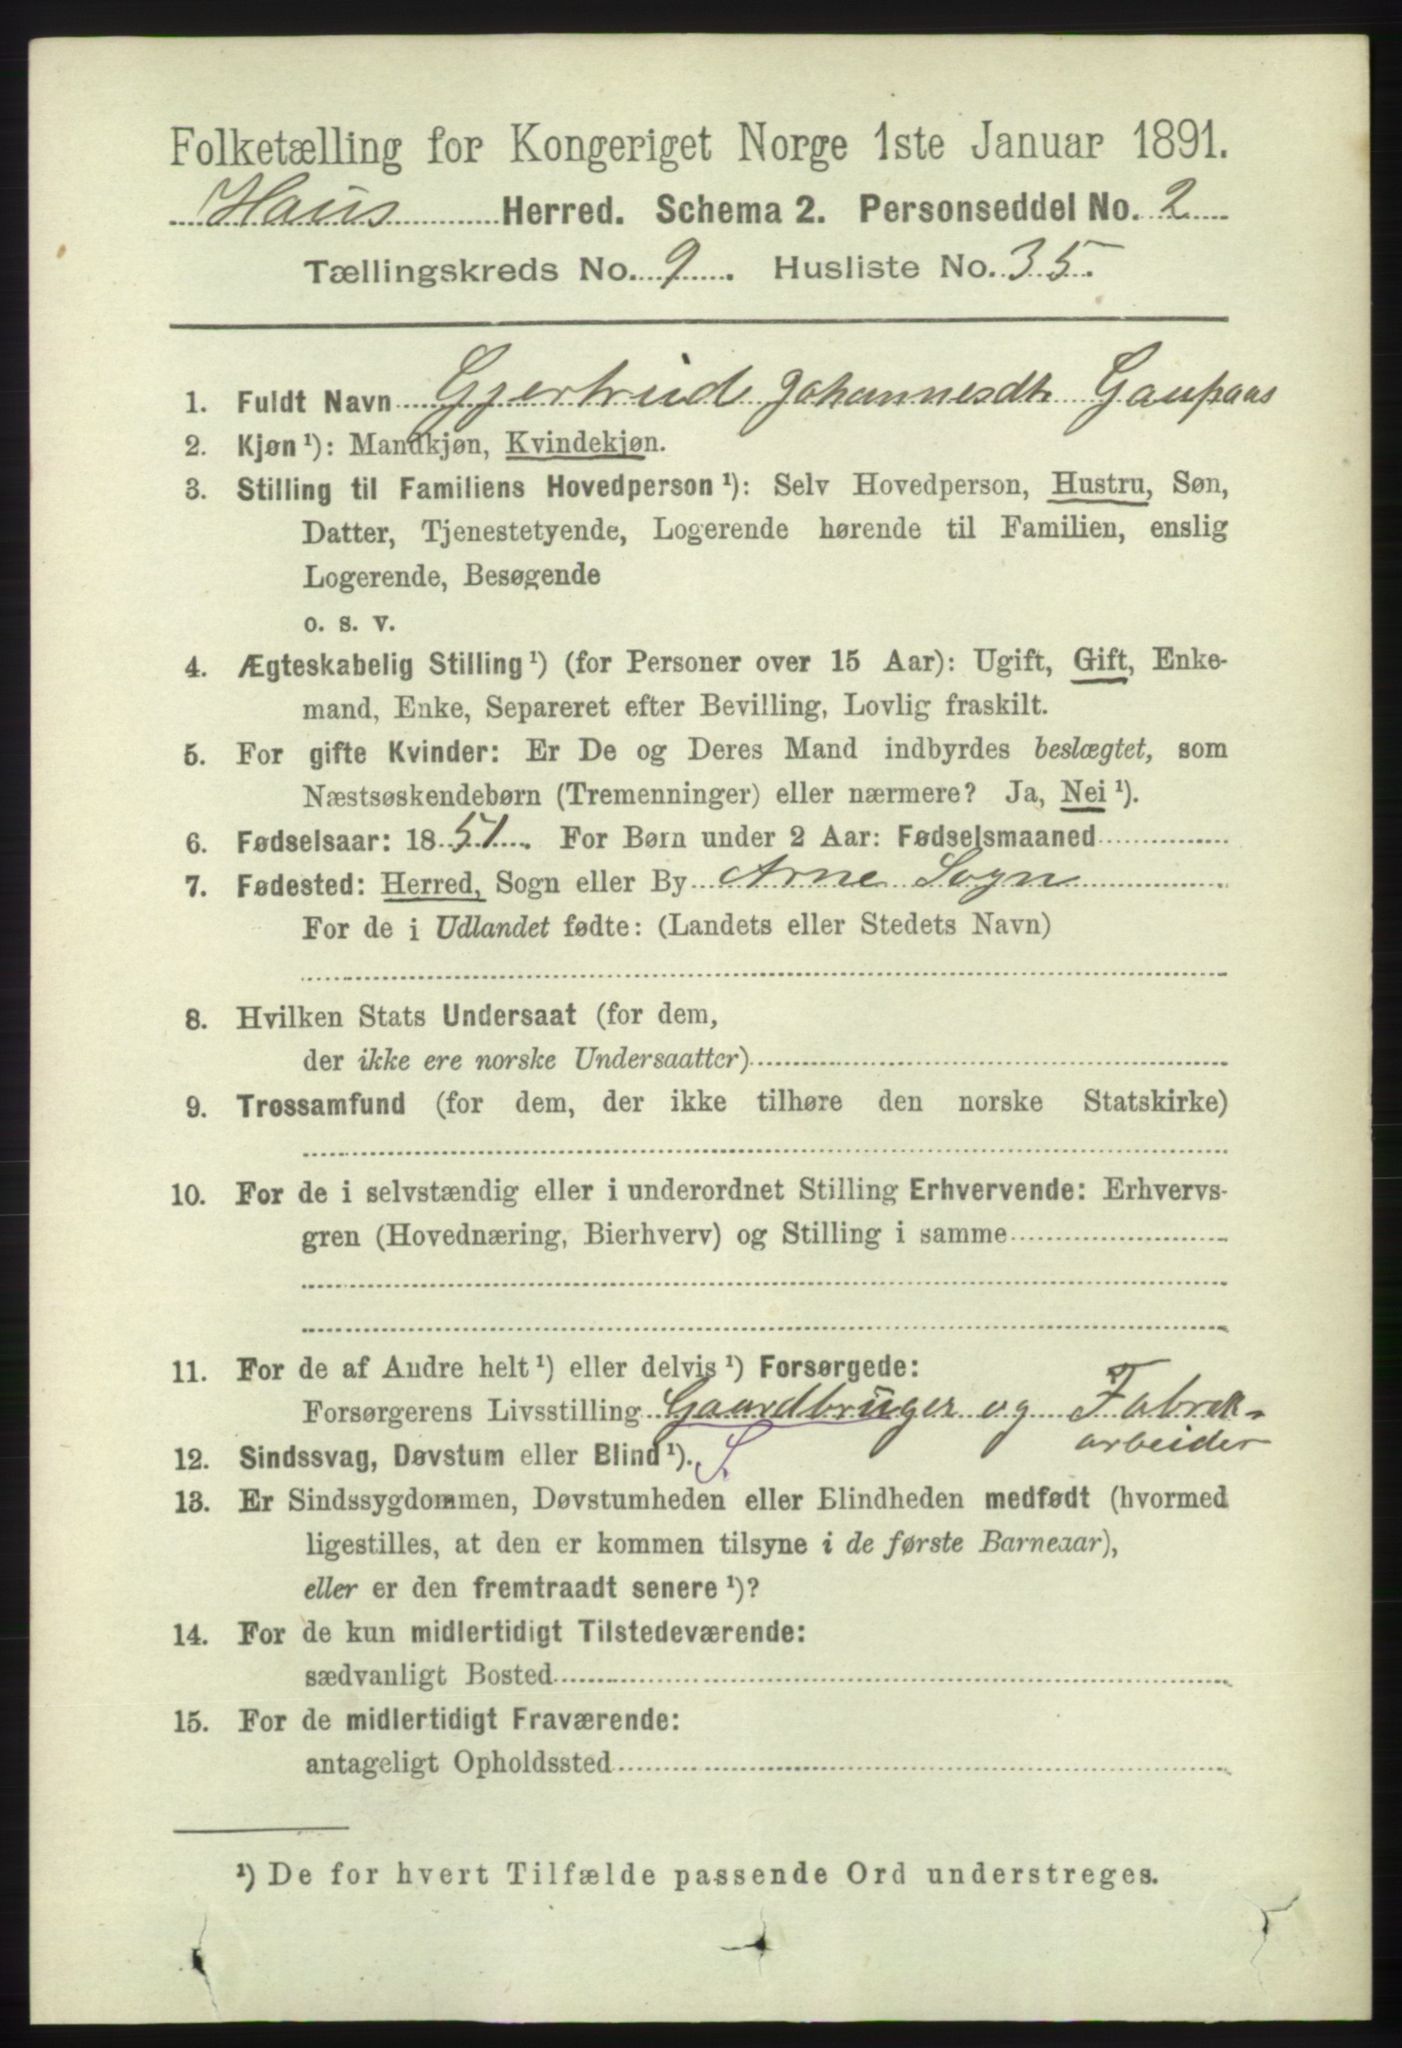 Folketælling for Kongeriget Norge 1ste Januar 1891.
Haus Herred. Schema 2. Personseddel No. 2
Tællingskreds No. 9. Husliste No. 35.
1. Fuldt Navn Gjertrud Johannesdtr Gaupaas
2. Kjøn ¹): Mandkjøn, Kvindekjøn.
3. Stilling til Familiens Hovedperson ¹): Selv Hovedperson, Hustru, Søn,
Datter, Tjenestetyende, Logerende hørende til Familien, enslig
Logerende, Besøgende
o. s. v.
4. Ægteskabelig Stilling ¹) (for Personer over 15 Aar): Ugift, Gift, Enke-
mand, Enke, Separeret efter Bevilling, Lovlig fraskilt.
5. For gifte Kvinder: Er De og Deres Mand indbyrdes beslægtet, som
Næstsøskendebørn (Tremenninger) eller nærmere? Ja, Nei ¹).
6. Fødselsaar: 1851. For Børn under 2 Aar: Fødselsmaaned
7. Fødested: Herred, Sogn eller By Arne Sogn
For de i Udlandet fødte: (Landets eller Stedets Navn)
8. Hvilken Stats Undersaat (for dem,
der ikke ere norske Undersaatter)
9. Trossamfund (for dem, der ikke tilhøre den norske Statskirke)
10. For de i selvstændig eller i underordnet Stilling Erhvervende: Erhvervs-
gren (Hovednæring, Bierhverv) og Stilling i samme
11. For de af Andre helt ¹) eller delvis ¹) Forsørgede:
Forsørgerens Livsstilling Gaardbruger og Fabrik-
arbeider
12. Sindssvag, Døvstum eller Blind ¹). S.
13. Er Sindssygdommen, Døvstumheden eller Blindheden medfødt (hvormed
ligestilles, at den er kommen tilsyne i de første Barneaar),
eller er den fremtraadt senere ¹)?
14. For de kun midlertidigt Tilstedeværende:
sædvanligt Bosted
15. For de midlertidigt Fraværende:
antageligt Opholdssted
¹) De for hvert Tilfælde passende Ord understreges.